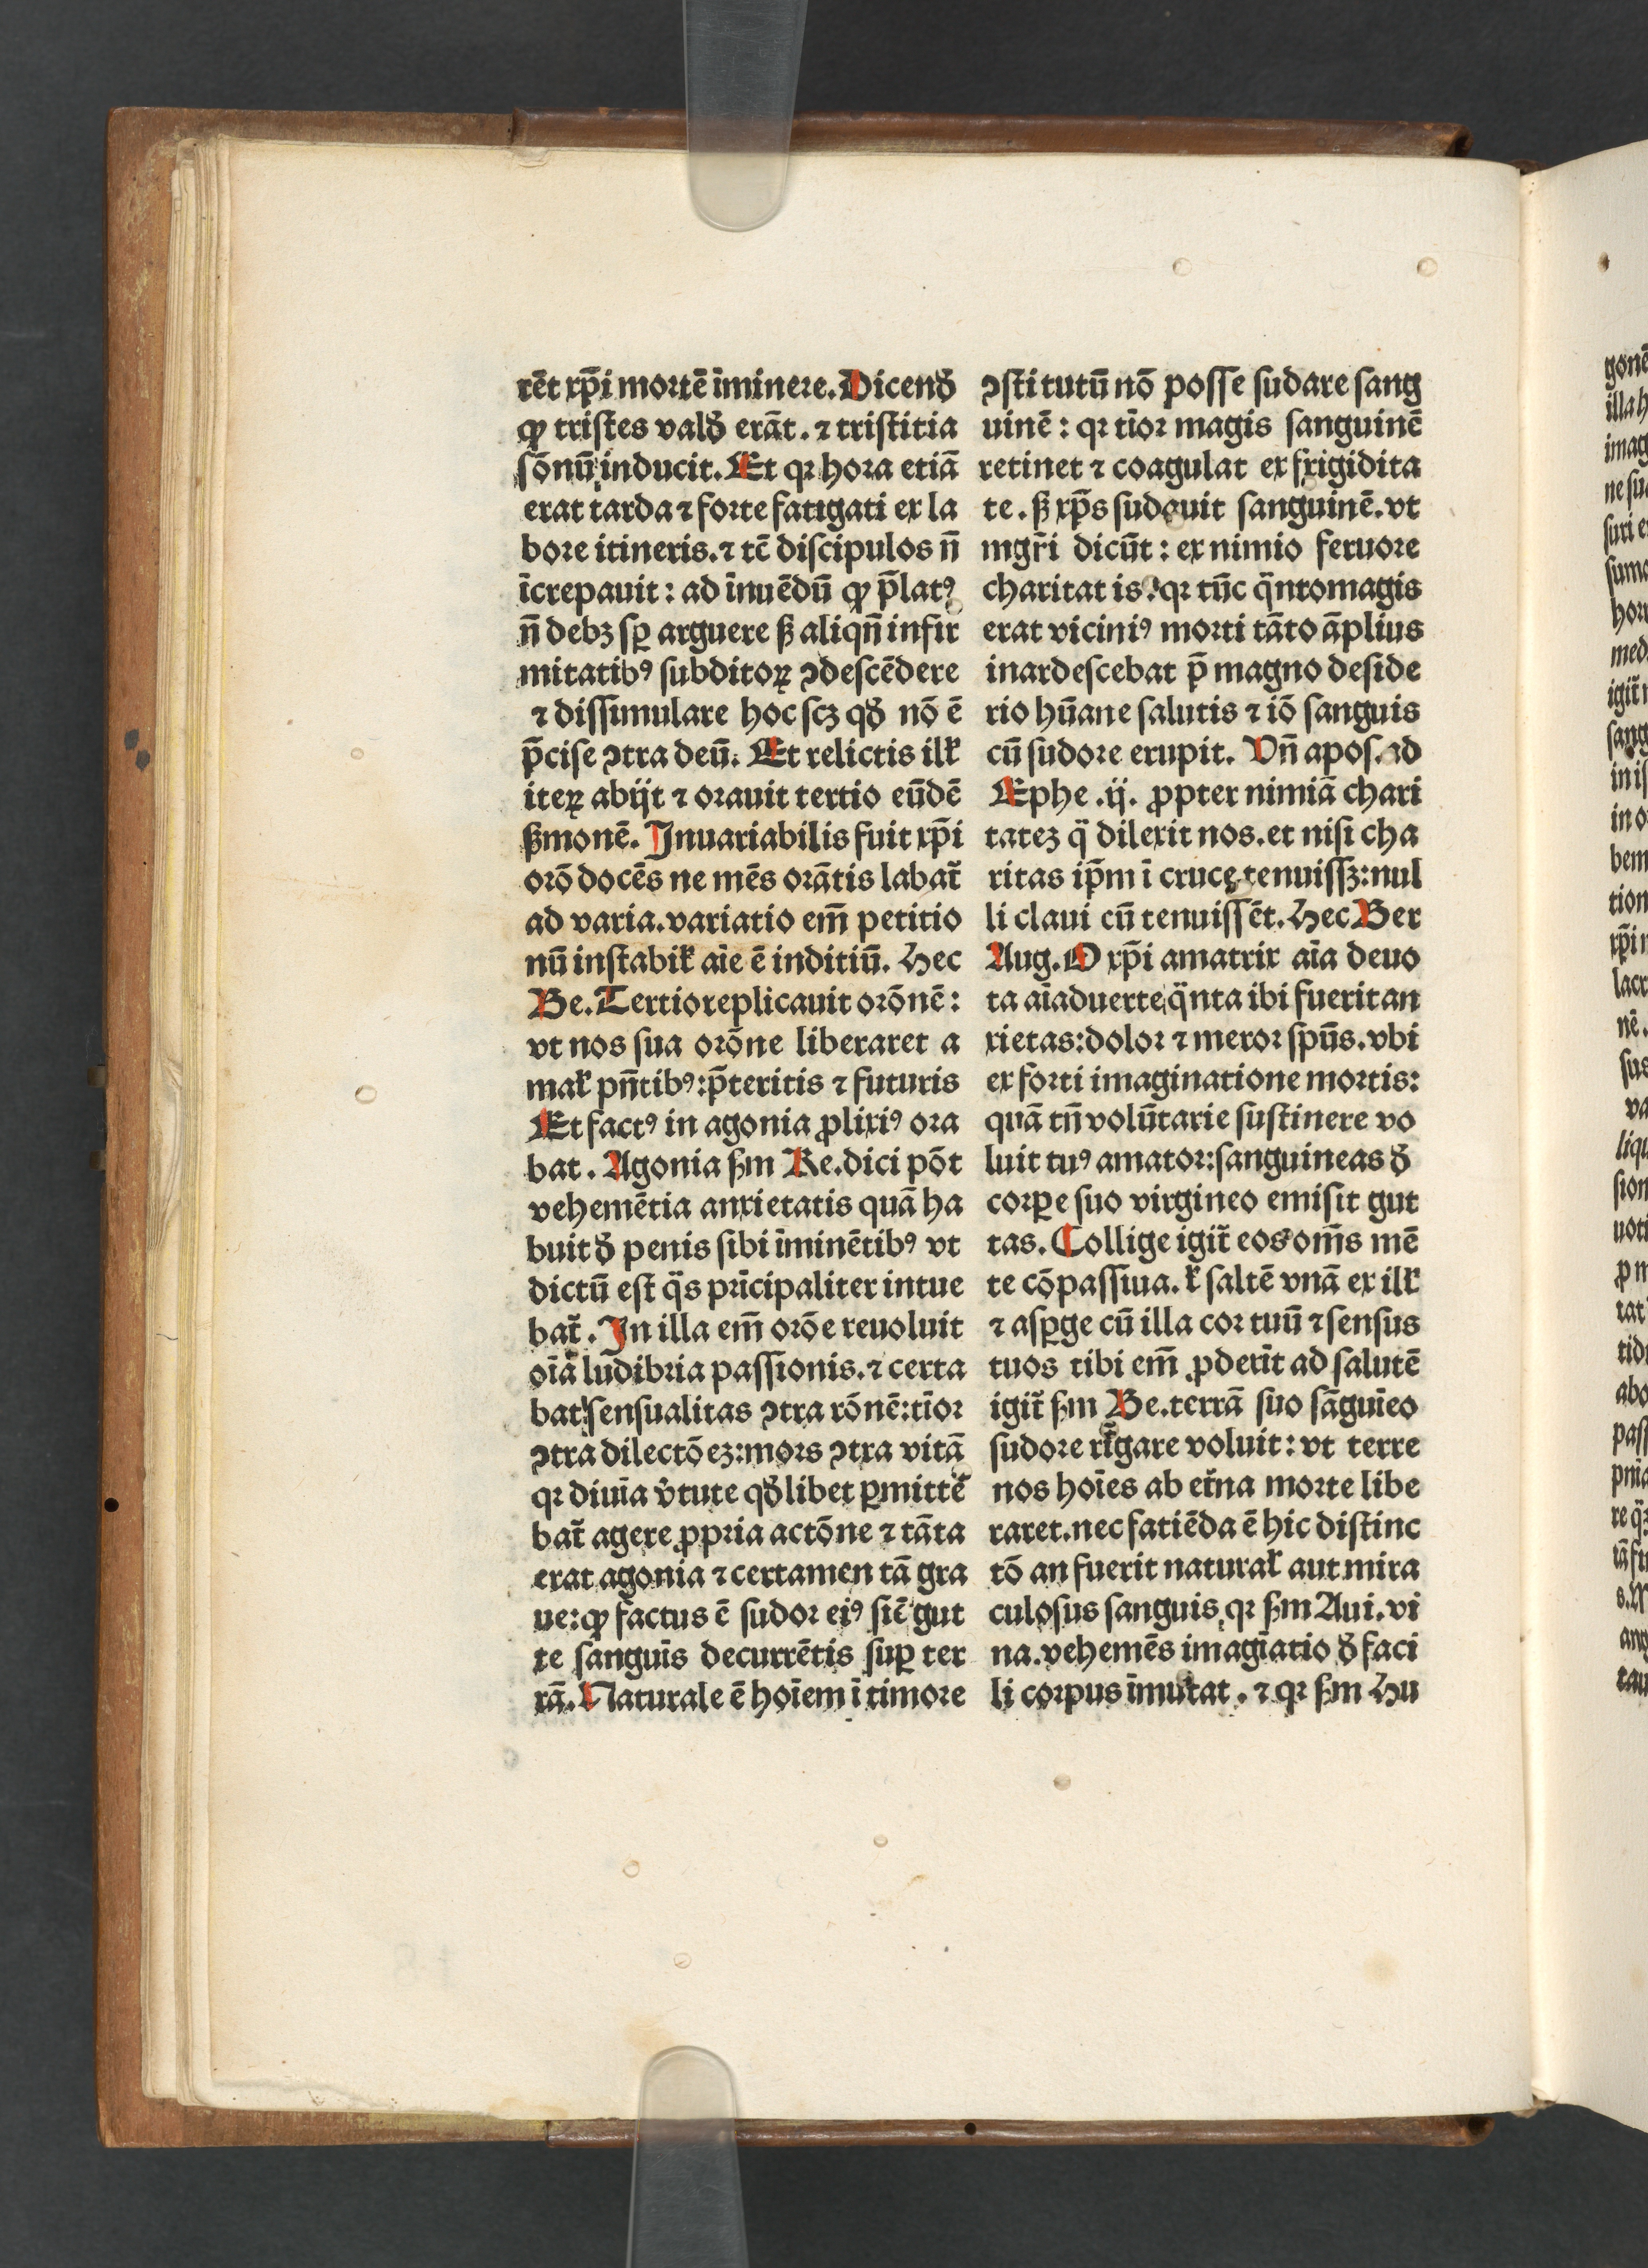 rēt xp̄i mortē īminere. Dicenꝺ̃
ꝙ tristes valꝺ̃ erāt. ⁊ tristitia
sōnū inducit. Et qꝛ hora etiā
erat tarda ⁊ forte fatigati ex la
bore itineris. ⁊ tē discipulos n̄
īcrepauit: ad īnuēdū ꝙ p̄latꝰ
n̄ debꝫ sꝑ arguere ẜ aliqn̄ infir
mitatibꝰ subditoꝝ ꝯdescēdere
⁊ dissimulare hoc scꝫ qꝺ̃ nō ē
p̄cise ꝯtra deū. Et relictis ilł
iteꝝ abijt ⁊ orauit tertio eūdē
ẜmonē. Inuariabilis fuit xp̄i
orō docēs ne mēs orātis labat᷑
ad varia. variatio em̄ petitio
nū instabił aīe ē inditiū. Hec
Be. Tertio replicauit orōnē:
vt nos sua orōne liberaret a
mał pn̄tibꝰ: p̄teritis ⁊ futuris
Et factꝰ in agonia ꝓlixiꝰ ora
bat. Agonia ẜm Re. dici pōt
vehemētia anxietatis quā ha
buit ꝺ̃ penis sibi īminētibꝰ vt
dictū est q̈s prīcipaliter intue
bat᷑. In illa em̄ orōe reuoluit
oīa ludibria passionis. ⁊ certa
bat sensualitas ꝯtra rōnē: tīor
ꝯtra dilectōeꝫ: mors ꝯtra vitā
qꝛ diuīa v̓tute qꝺ̃libet ꝑmitte
bat᷑ agere ꝓpria actōne ⁊ tāta
erat agonia ⁊ certamen tā gra
ue: ꝙ factus ē sudor eiꝰ sic̄ gut
te sanguīs decurrētis suꝑ ter
rā. Naturale ē hoīem ī timore
ꝯstitutū nō posse sudare sang
uinē: qꝛ tīor magis sanguinē
retinet ⁊ coagulat ex frigidita
te. ẜ xp̄s sudauit sanguinē. vt
mgr̄i dicūt: ex nimio feruore
charitatis. qꝛ tūc q̈ntomagis
erat viciniꝰ morti tāto āplius
inardescebat p̄ magno deside
rio hūane salutis ⁊ iō sanguis
cū sudore erupit. Vn̄ apos. ad
Ephe. ij. ꝓpter nimiā chari
tateꝫ q̈ dilexit nos. et nisi cha
ritas ip̄m ī cruce tenuissꝫ: nul
li claui cū tenuissēt. Hec Ber
Aug. O xp̄i amatrix aīa deuo
ta aīaduerte q̈nta ibi fuerit an
xietas: dolor ⁊ meror spūs. vbi
ex forti imaginatione mortis:
quā tn̄ volūtarie sustinere vo
luit tuꝰ amator: sanguineas ꝺ̃
corꝑe suo virgineo emisit gut
tas. Collige igit᷑ eos om̄s mē
te cōpassiua. ł saltē vnā ex ilł
⁊ asꝑge cū illa cor tuū ⁊ sensus
tuos tibi em̄ ꝓderīt ad salutē
igit᷑ ẜm Be. terrā suo sāguīeo
sudore rigare voluit: vt terre
nos hoīes ab et̄na morte libe
raret. nec fatiēda ē hic distinc
tō an fuerit naturał aut mira
culosus sanguis, qꝛ ẜm Aui. vi
na. vehemēs imagīatio ꝺ̃ faci
li corpus īmutat. ⁊ qꝛ ẜm Hu